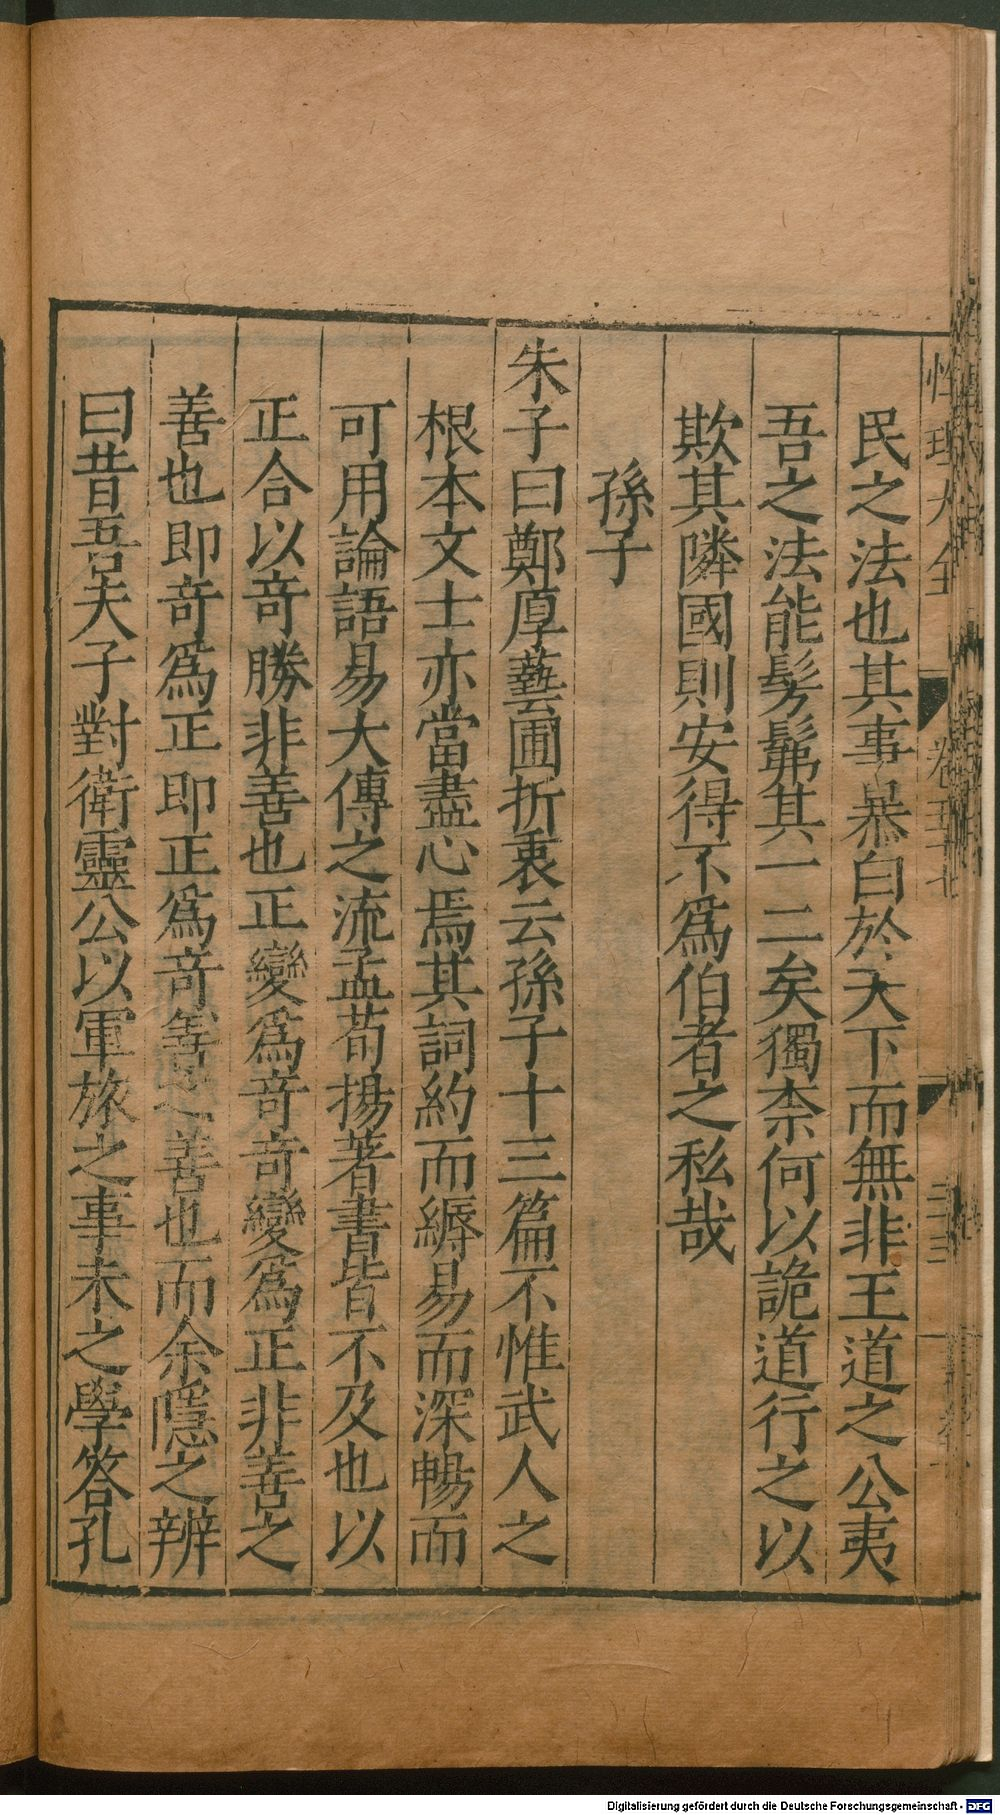 性理大全 卷五十七
民之法也其事暴白於天下而無非王道之公夷
吾之法能髣髴其一二矣獨柰何以詭道行之以
欺其隣國則安得不爲伯者之私哉
孫子
朱子曰鄭厚藝圃折衷云孫子十三篇不惟武人之
根本文士亦當盡心焉其詞約而縟易而深暢而
可用論語易大傳之流孟荀揚著書皆不及也以
正合以竒勝非善也正變爲竒竒變爲正非善之
善也即竒爲正即正爲竒善之善也而余隱之辨
曰昔吾夫子對衛靈公以軍旅之事未之學答孔
Digitalisierung gefördert durch die Deutsche Forschungsgemeinschaft - DFG